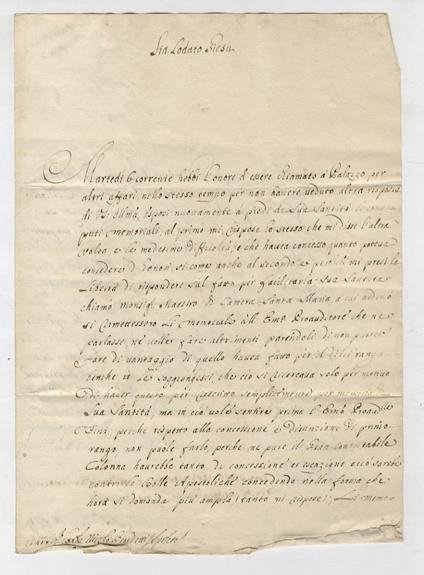 Sia Lodato Giesu
Martedi 6 corrente hebbi l'onore d'essere chiamato à Palazzo per
altri affari, nello stesso tempo per non havere veduto altra risposta
di VS Illma, esposi nuovamente à piedi de Sua Santità
memoriali, al primo mi rispose lo stesso che mi disse l'altra
volta, e le medesime difficoltà, e che havea concesso quanto poteva
concedere d'honori si come anche al secondo e perciò mi presi la
libertà di rispondere sul fatto per facilitarla: Sua Santità
chiamò Monsigr Maestro di Camera Santa Maria, a cui ordinò
si rimettessero li memoriali all' Emo Proauditore che ne
parlasse, nè volse fare altrimenti parendoli di non potere
fare di vantaggio di quello havea fatto per
benche io le soggiungessi, che ciò si ricercava solo per motivo
di haver questo per semplicemente per memoria
Sua Santità, ma in ciò vole sentire prima l'Emo Proaud
perche rispetto alla concessione e di primo
rango, non puole farlo, perche ne pure il Gran Contestabile
Colonna haurebbe tanto di concessione et esenzione e ciò sarebe
contro la Bolle Apostoliche concedendo nella forma che
hora si domanda più ampla (tanto mi rispose); Li memo=